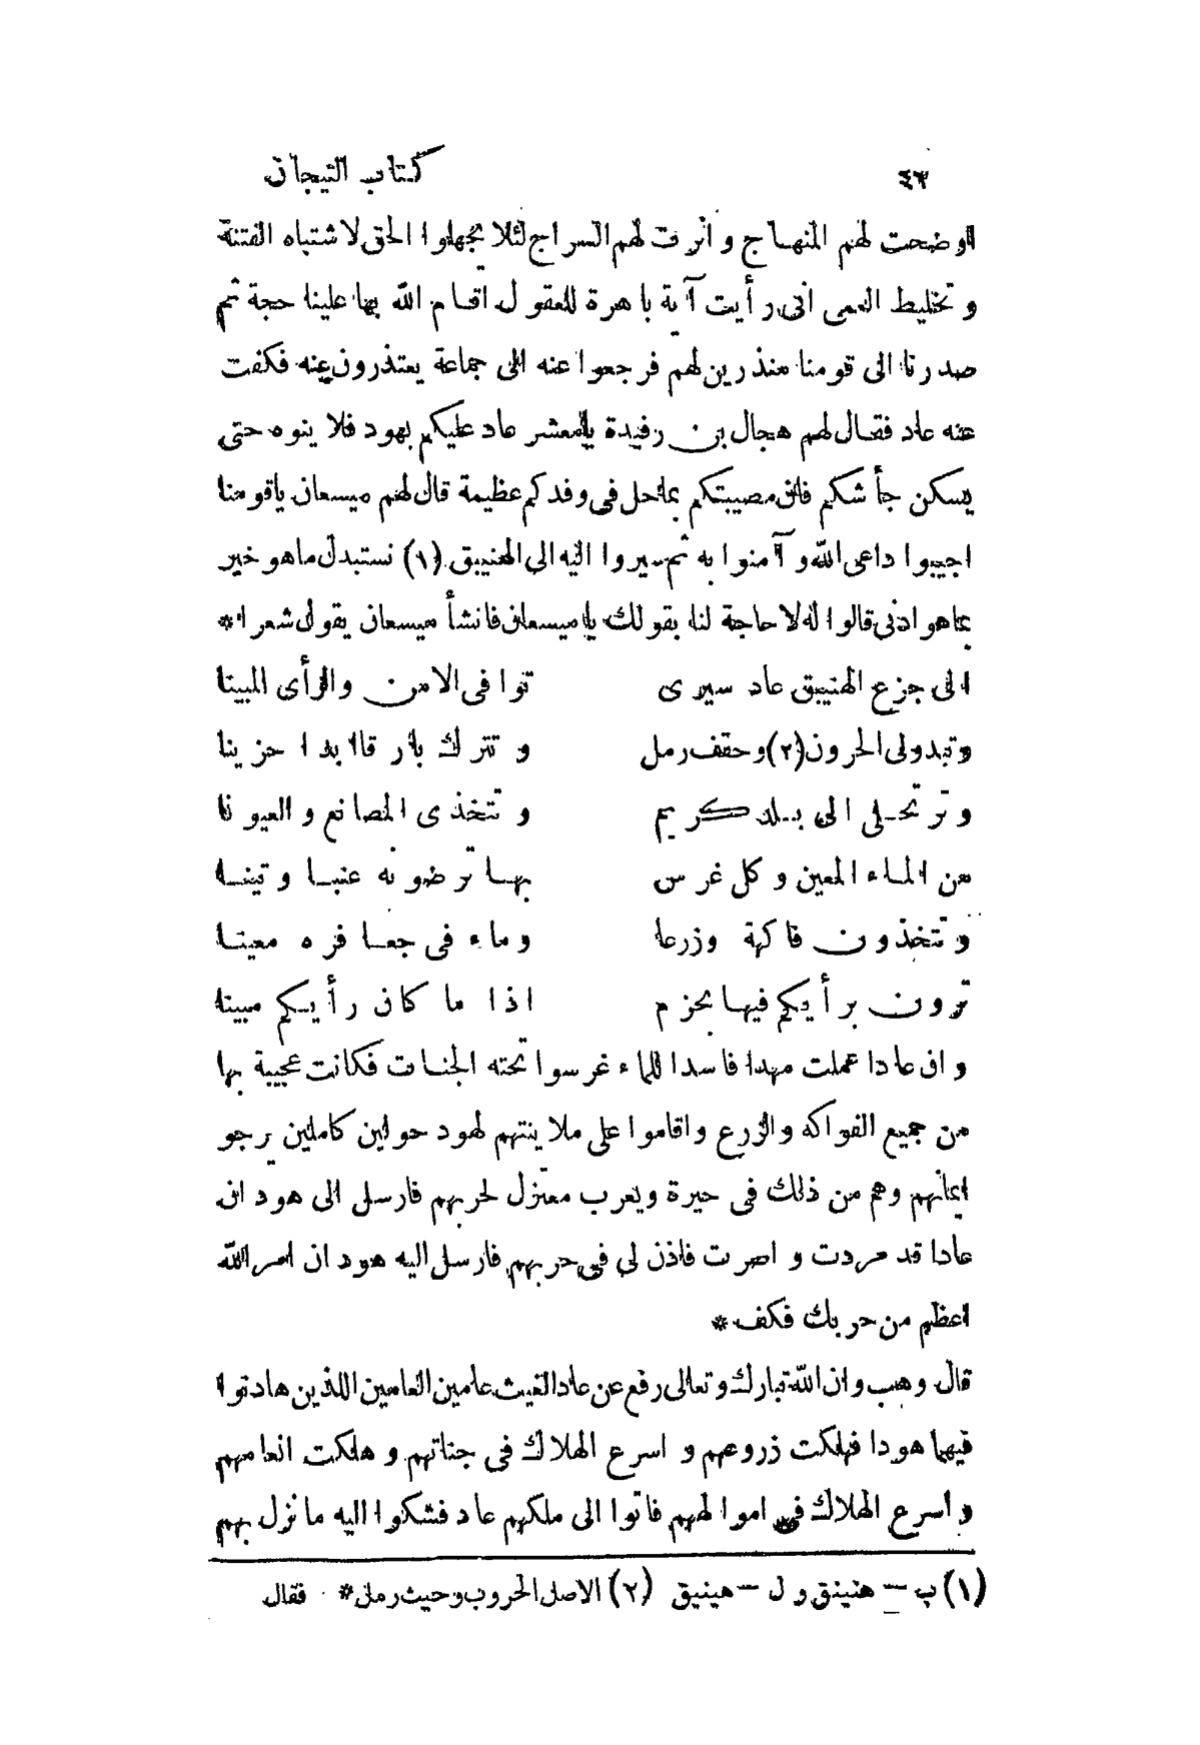 ٤٣ كتاب التيجان
اوضحت لهم المنهاج وانرت لهم السراج لئلا يجهلوا الحق لاشتباه الفتنة
وتخليط العمى انى رأيت آية باهرة للعقول اقام الله بها علينا حجة ثم
صدرنا الى قومنا منذرين لهم فرجعوا عنه الى جماعة يعتذرون عنه فكفت
عنه عاد فقال لهم هجال بن رفيدة يامعشر عاد عليكم بهود فلا ينوه حتى
يسكن جأشكم فان مصيبتكم بماحل فى وفدكم عظيمة قال لهم ميسعان ياقومنا
اجيبوا داعى الله وآمنوا به ثم سيروا اليه الى الهنيبق (١) نستبدل ماهو خير
بماهو ادنى قالوا له لا حاجة لنا بقولك يا ميسعان فانشأ ميسعان يقول شعرا *
الى جزع الهنيبق عاد سيرى توا فى الامن والرأى المبينا
وتبدولى الحرون (٢) وحقف رمل وتترك بارقا ابدا حزينا
وترتحلى الى بلد كريم وتتخذى المصانع والعيونا
من الماء المعين وكل غرس بها ترضونه عنبا وتينا
وتتخذون فاكهة وزرعا وماء فى جعافره معينا
ترون برأيكم فيها بحزم اذا ما كان رأيكم مبينا
وان عادا عملت مهدا فاسدا للماء غرسوا تحته الجنات فكانت عجيبة بها
من جميع الفواكه والزرع واقاموا على ملاينتهم لهود حولين كاملين يرجو
ايمانهم وهم من ذلك فى حيرة ويعرب معتزل لحربهم فارسل الى هود ان
عادا قد مردت و اصرت فاذن لى فى حربهم فارسل اليه هود ان امر الله
اعظم من حربك فكف *
قال وهب وان الله تبارك وتعالى رفع عن عاد الغيث عامين العامين اللذين هادنوا
فيهما هودا فهلكت زروعهم و اسرع الهلاك فى جناتهم و هلكت انعامهم
واسرع الهلاك فى اموالهم فاتوا الى ملكهم عاد فشكوا اليه ما نزل بهم
(١) ب – هنينق و ل – هينيق (٢) الاصل الحروب وحيث رمل * فقال